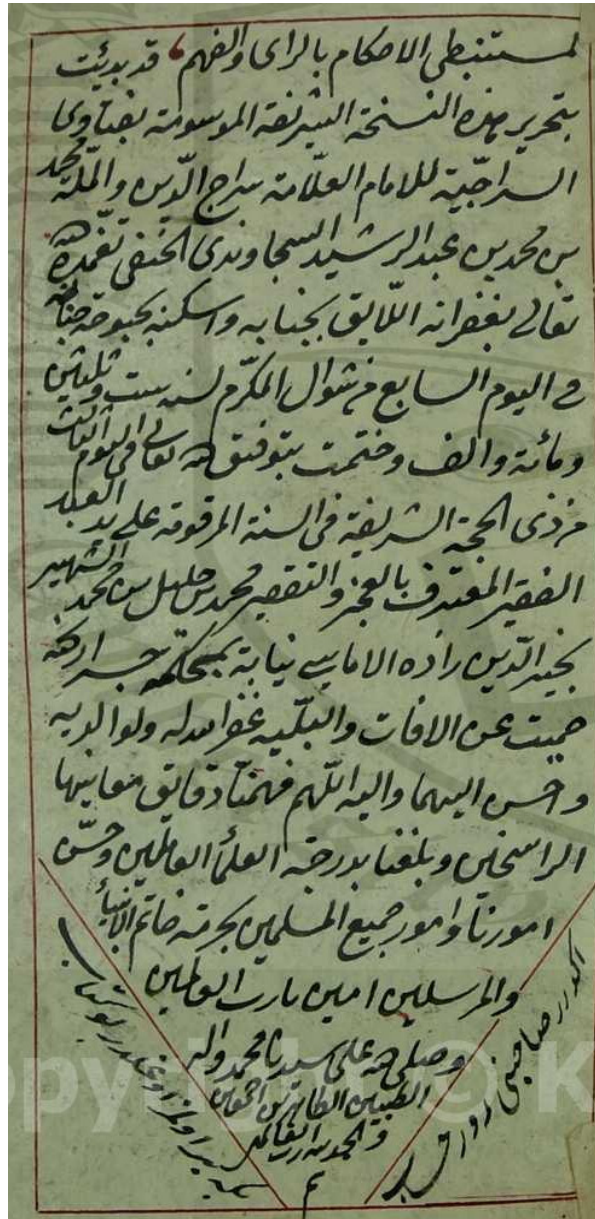 لمستنبطى الاحكام بالراى والفهم قد بدئت
بتحرير هذه النسخة الشريفة الموسومة بفتاوى
السراجيّة للامام العلّامة سراج الدّين والملّة محمد
بن محمد بن عبد الرشيد السجاوندى الحنفى تغمده الله
تعالى بغفرانه اللايق بجنابه واسكنه بحبوحة جنانه
فى اليوم السابع من شوال المكرّم لسنة ست وثلثين
ومائة والف وختمت بتوفيق الله تعالى فى اليوم الثالث
من ذى الحجة الشريفة فى السنة المرقومة على يد العبد
الفقير المعترف بالعجز والتقصير محمد بن خليل بن محمد الشهير
بخير الدّين زاده الاماسى نيابة بمحكمة
حميت عن الافات والبليّه غفر الله له ولوالديه
واحسن اليهما واليه اللّهم فهّمنا دقايق معانيها
الراسخين وبلغنا بدرجة العلمأ العاملين وحسّن
امورنا وامور جميع المسلمين بحرمة خاتم الانبيأ
والمرسلين امين يا رب العالمين
وصلى الله على سيدنا محمد واله
الطيبين الطاهرين اجمعين
والحمد لله رب العالمين
تم